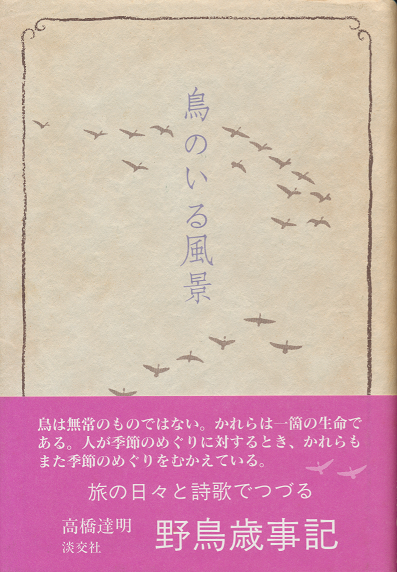 鳥のいる風景
鳥は無常のものではない。かれらは一箇の生命で
ある。人が季節のめぐりに対するとき、かれらも
また季節のめぐりをむかえている。
旅の日々と詩歌でつづる
高橋達明
淡交社
野鳥歳事記